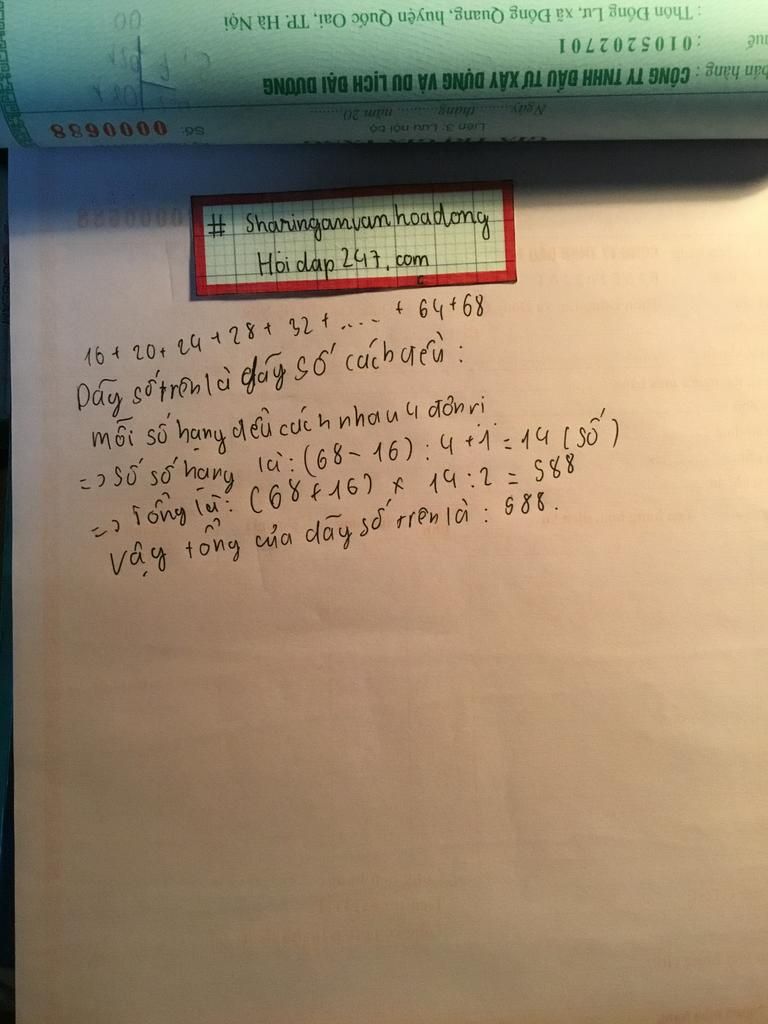 : Thôn Đồng Lư, xã Đồng Quang, huyện Quốc Oai, TP. Hà Nội
: 0105202701
bán hàng : CÔNG TY TNHH ĐẦU TƯ XÂY DỰNG VÀ DU LỊCH ĐẠI DƯƠNG
Ngày......... tháng ......... năm 20.........
Liên 3: Lưu nội bộ
Số: 0000688
# Sharinganvanhoadong
Hỏi dap 247.com
16 + 20 + 24 + 28 + 32 + .... + 64 + 68
Dãy số trên là dãy số cách đều :
mỗi số hạng đều cách nhau 4 đơn vị
=> Số số hạng là : (68 - 16) : 4 + 1 = 14 (số)
=> Tổng là : (68 + 16) × 14 : 2 = 588
Vậy tổng của dãy số trên là : 588.